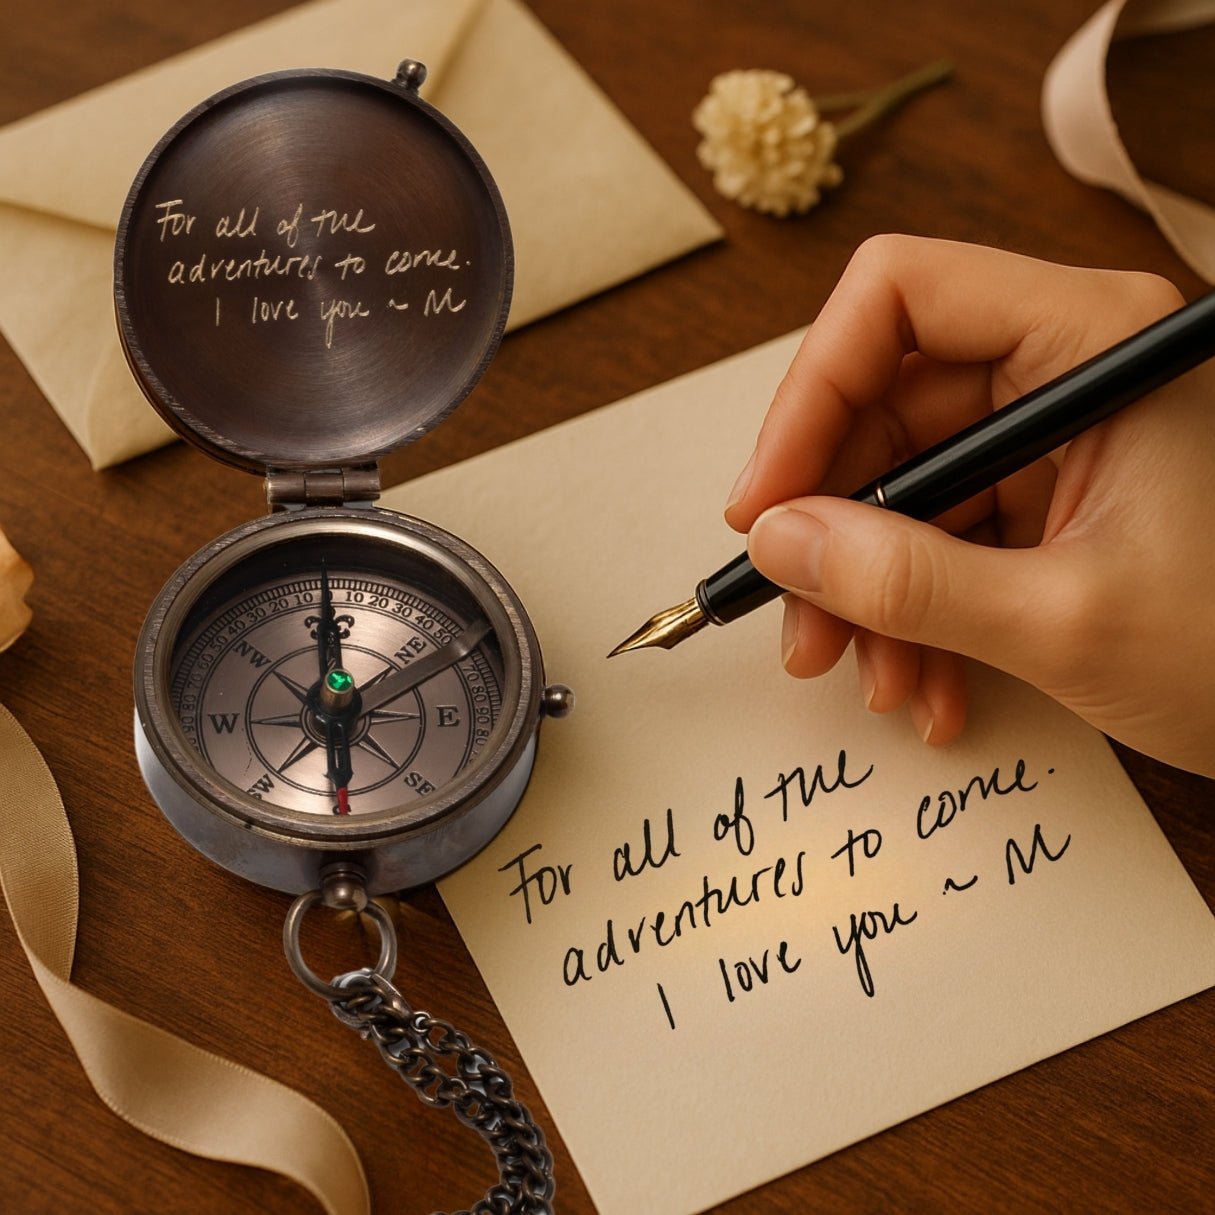 For all of the
adventures to come.
I love you ~ M
10 20 30 40 50
10 20 30 40 50 60 70 80 90
70 80 90
NW
NE
W
E
SW
SE
S
For all of the
adventures to come.
I love you ~ M